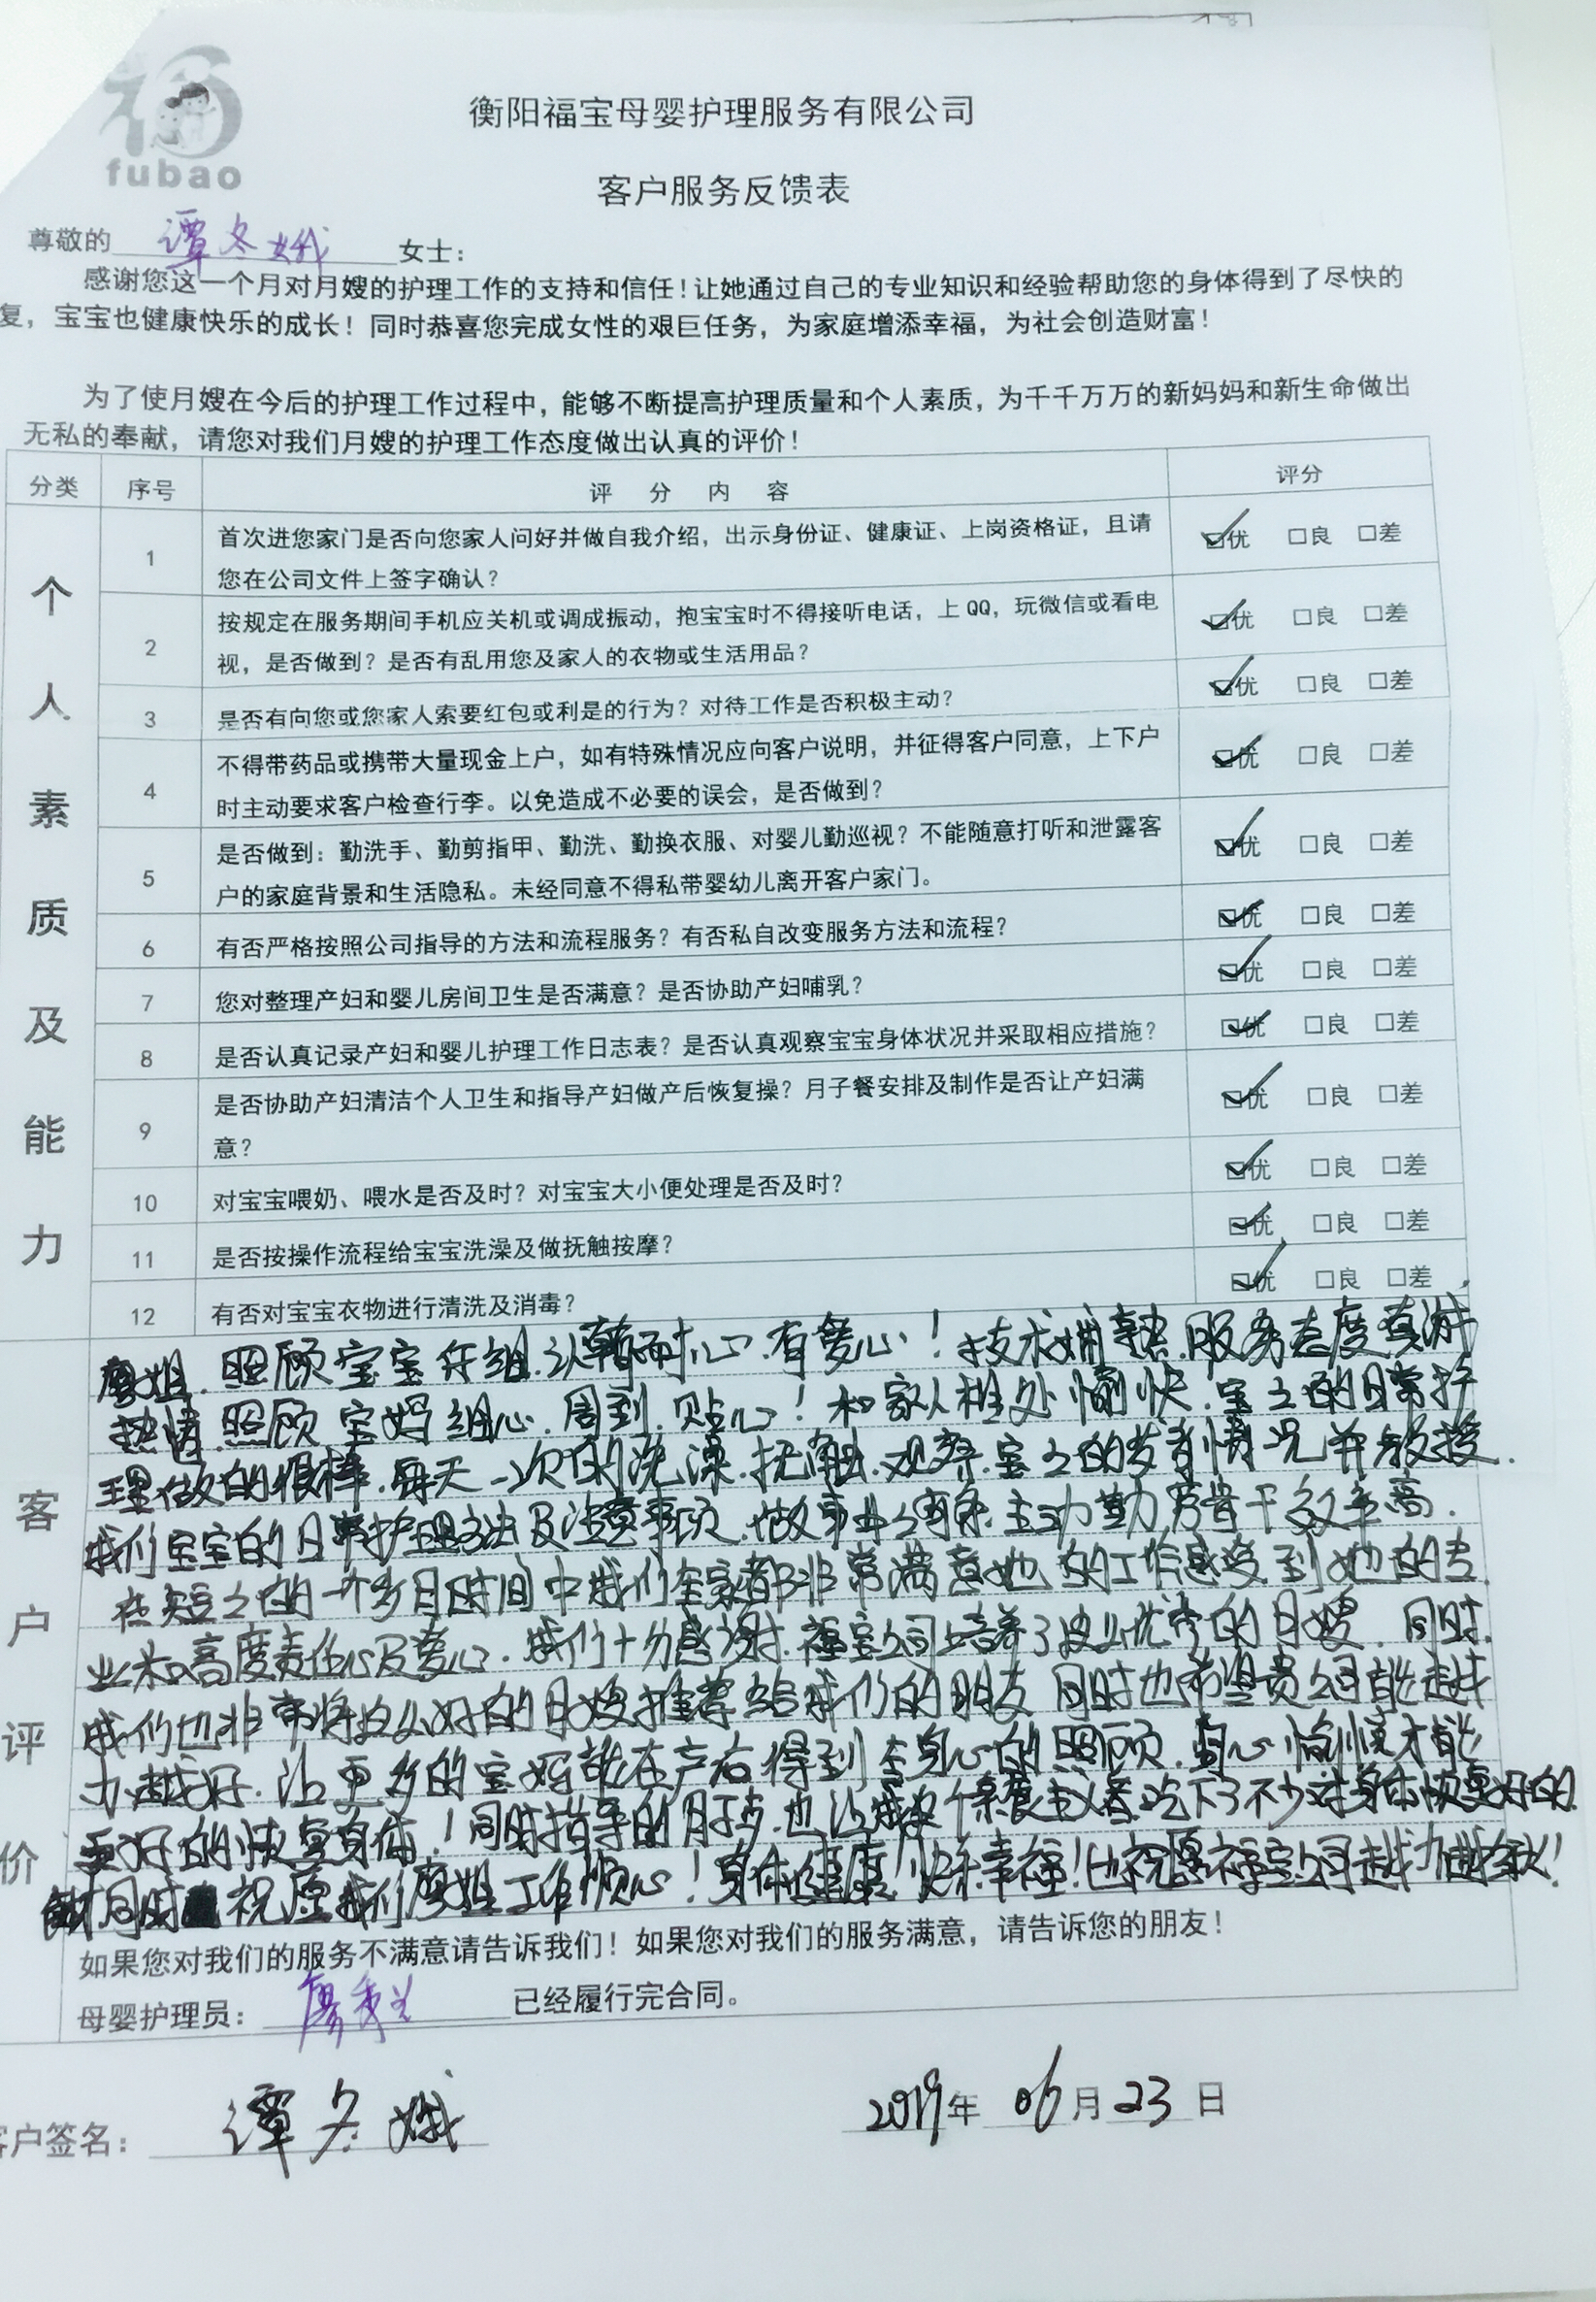 福
fubao
衡阳福宝母婴护理服务有限公司
客户服务反馈表
尊敬的 谭冬娥 女士：
感谢您这一个月对月嫂的护理工作的支持和信任！让她通过自己的专业知识和经验帮助您的身体得到了尽快的
复，宝宝也健康快乐的成长！同时恭喜您完成女性的艰巨任务，为家庭增添幸福，为社会创造财富！
为了使月嫂在今后的护理工作过程中，能够不断提高护理质量和个人素质，为千千万万的新妈妈和新生命做出
无私的奉献，请您对我们月嫂的护理工作态度做出认真的评价！
分类 序号 评分内容 评分
个人素质及能力
1 首次进您家门是否向您家人问好并做自我介绍，出示身份证、健康证、上岗资格证，且请 ☑优 □良 □差
您在公司文件上签字确认？
2 按规定在服务期间手机应关机或调成振动，抱宝宝时不得接听电话，上QQ，玩微信或看电 ☑优 □良 □差
视，是否做到？是否有乱用您及家人的衣物或生活用品？
3 是否有向您或您家人索要红包或利是的行为？对待工作是否积极主动？ ☑优 □良 □差
4 不得带药品或携带大量现金上户，如有特殊情况应向客户说明，并征得客户同意，上下户 ☑优 □良 □差
时主动要求客户检查行李。以免造成不必要的误会，是否做到？
5 是否做到：勤洗手、勤剪指甲、勤洗、勤换衣服、对婴儿勤巡视？不能随意打听和泄露客 ☑优 □良 □差
户的家庭背景和生活隐私。未经同意不得私带婴幼儿离开客户家门。
6 有否严格按照公司指导的方法和流程服务？有否私自改变服务方法和流程？ ☑优 □良 □差
7 您对整理产妇和婴儿房间卫生是否满意？是否协助产妇哺乳？ ☑优 □良 □差
8 是否认真记录产妇和婴儿护理工作日志表？是否认真观察宝宝身体状况并采取相应措施？ ☑优 □良 □差
9 是否协助产妇清洁个人卫生和指导产妇做产后恢复操？月子餐安排及制作是否让产妇满 ☑优 □良 □差
意？
10 对宝宝喂奶、喂水是否及时？对宝宝大小便处理是否及时？ ☑优 □良 □差
11 是否按操作流程给宝宝洗澡及做抚触按摩？ ☑优 □良 □差
12 有否对宝宝衣物进行清洗及消毒？ ☑优 □良 □差
客户评价
廖姐.照顾宝宝仔细.认真耐心.有爱心！技术娴熟.服务态度真诚
热情.照顾宝妈细心.周到.贴心！和家人相处愉快.宝之的日常护
理做的很棒.每天一次的洗澡.抚触.观察.宝之的发育情况并教授.
我们宝宝的日常护理方法及注意事项.做事业.主动勤劳肯干效率高.
在短之的一个多月时间中我们全家都非常满意她的工作感受到她的专
业和高度责任心及爱心.我们十分感谢.福宝公司培养了这么优秀的月嫂.同时.
我们也非常将这么好的月嫂推荐给我们的朋友 同时也希望贵公司能越
办越好.让更多的宝妈能在产后得到全身心的照顾.身心愉悦才能
更好的恢复身体！同时指导的月子 也让我这个素食主义者吃下了不少对身体恢复好的
同时祝愿我们廖姐工作顺心！身体健康！快乐幸福！也祝愿福宝公司越办越
如果您对我们的服务不满意请告诉我们！如果您对我们的服务满意，请告诉您的朋友！
母婴护理员： 廖 已经履行完合同。
客户签名： 谭冬娥 2019年 06月 23日